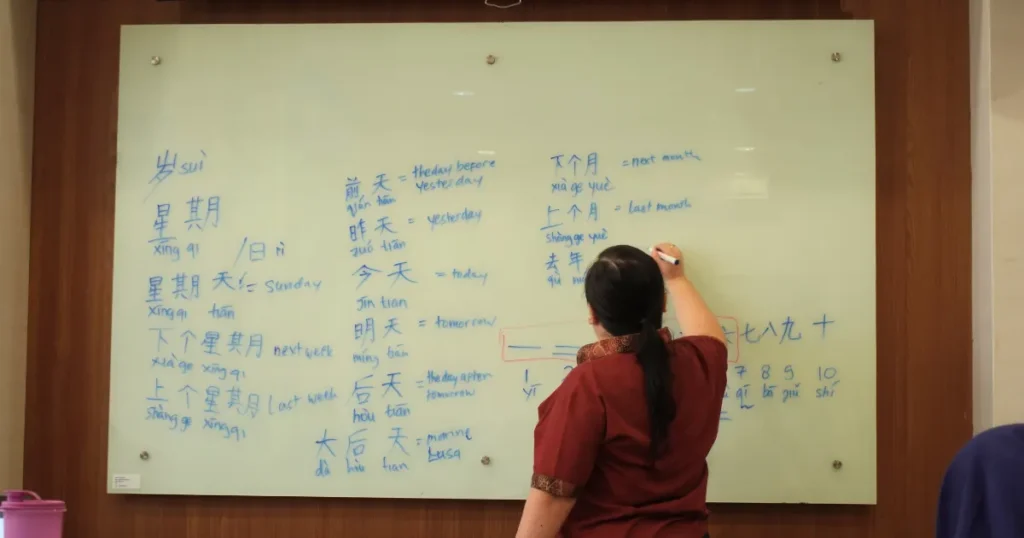 岁 suì
星期
xīng qi
/日 rì
星期天 = Sunday
xīng qi tiān
下个星期 next week
xià ge xīng qi
上个星期 last week
shàng ge xīng qi
前天 = the day before
yesterday
qián tiān
昨天 = yesterday
zuó tiān
今天 = today
jīn tian
明天 = tomorrow
míng tiān
后天 = the day after
tomorrow
hòu tiān
大后天 =
dà hòu tian
下个月 = next month
xià ge yuè
上个月 = last month
shàng ge yuè
去年
qù
一 二 七 八 九 十
1 7 8 9 10
yī qī bā jiǔ shí